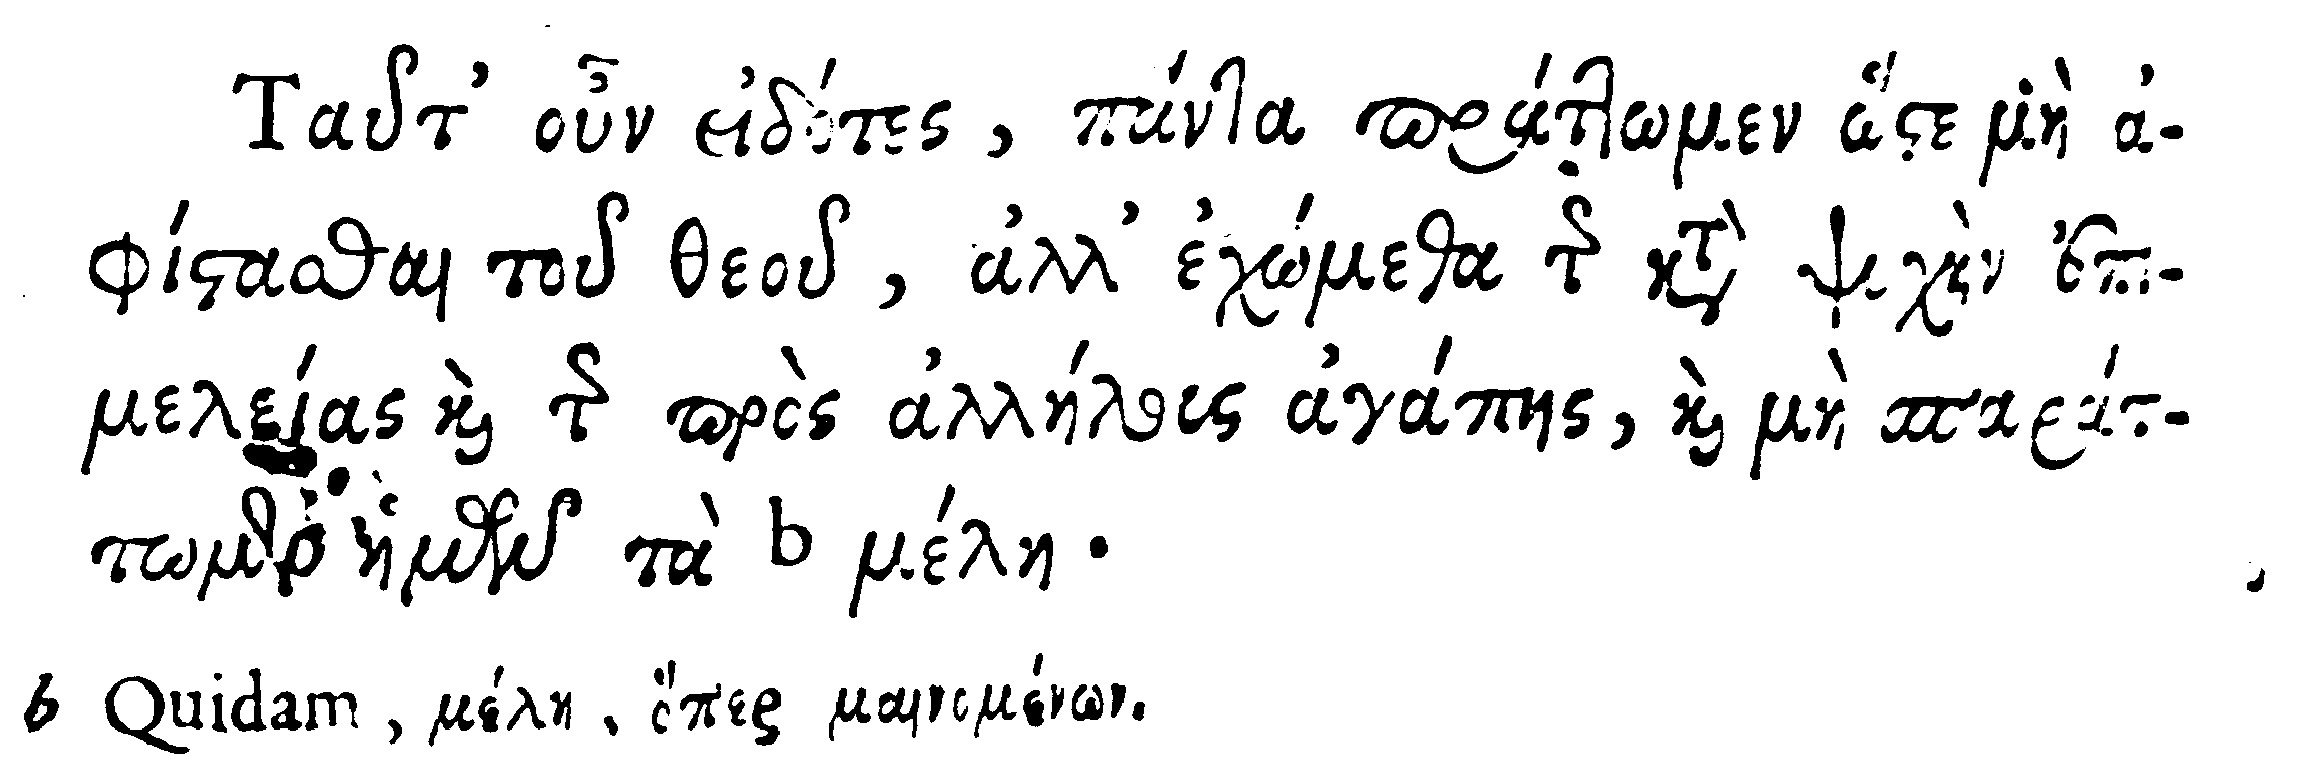 Ταῦτ' οὖν εἰδότες, πάντα πράττωμεν ὥστε μὴ ἀ-
φίστασθαι τοῦ θεοῦ, ἀλλ' ἐχώμεθα τῆς κατὰ ψυχὴν ἐπι-
μελείας καὶ τῆς πρὸς ἀλλήλους ἀγάπης, καὶ μὴ παράτ-
τωμεν ἡμῶν τὰ b μέλη.
b Quidam, μέλη, ὅπερ μαινομένων.